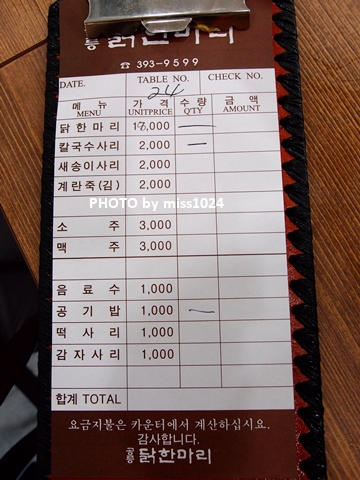 공릉 닭한마리
☎ 393-9599
DATE. TABLE NO. CHECK NO.
24
메뉴 가격 수량 금액
MENU UNITPRICE Q'TY AMOUNT
닭한마리 18,000 一
칼국수사리 2,000 一
새송이사리 2,000
계란죽(김) 2,000
PHOTO by miss1024
소주 3,000
맥주 3,000
음료수 1,000
공기밥 1,000 一
떡사리 1,000
감자사리 1,000
합계 TOTAL
요금지불은 카운터에서 계산하십시요.
감사합니다.
공릉 닭한마리